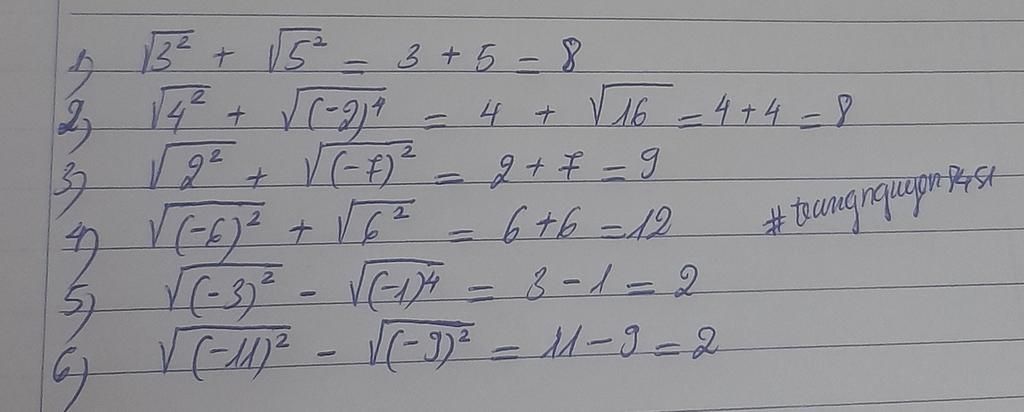 1) √3² + √5² = 3 + 5 = 8
2) √4² + √(-2)⁴ = 4 + √16 = 4 + 4 = 8
3) √2² + √(-7)² = 2 + 7 = 9
4) √(-6)² + √6² = 6 + 6 = 12
5) √(-3)² - √(-1)⁴ = 3 - 1 = 2
6) √(-11)² - √(-9)² = 11 - 9 = 2